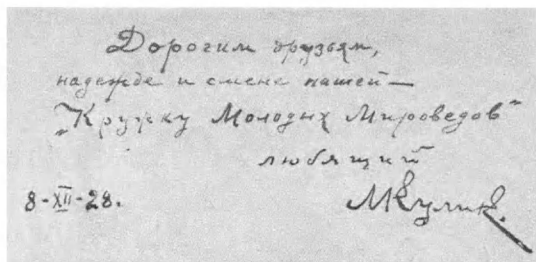 Дорогим друзьям,
надежде и смене нашей —
„Кружку Молодых Мироведов“
любящий
8-XII-28. МКулик.